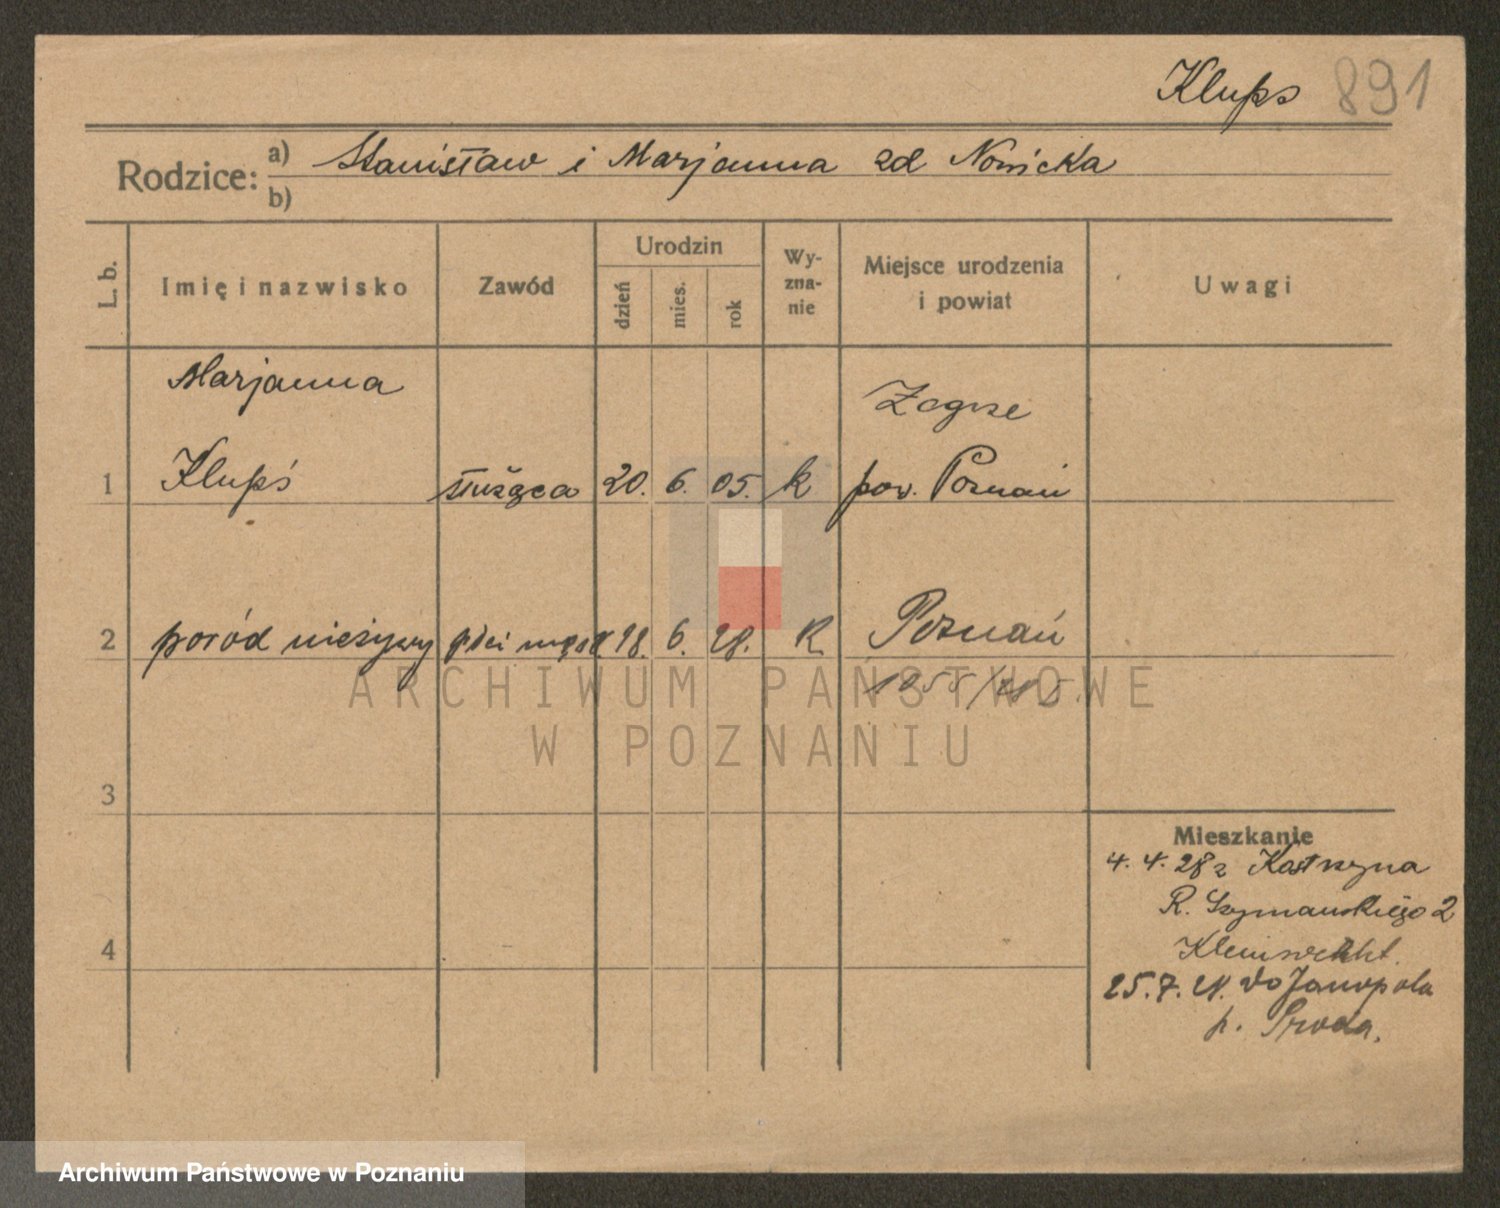 Klups 891
Rodzice: a) Stanisław i Marjanna zd Nowicka
b)
L. b.
Imię i nazwisko
Zawód
Urodzin
dzień
mies.
rok
Wy-
zna-
nie
Miejsce urodzenia
i powiat
Uwagi
Marjanna
Zegrze
1 Klupś służąca 20. 6. 05. k pow. Poznań
2 poród nieżywy płci męsk. 18. 6. 28. k Poznań
1055/28
ARCHIWUM PAŃSTWOWE
W POZNANIU
3
Mieszkanie
4. 4. 28 z Kostrzyna
R. Szymańskiego 2
4
25. 7. 28. do Janopola
p. Środa.
Archiwum Państwowe w Poznaniu